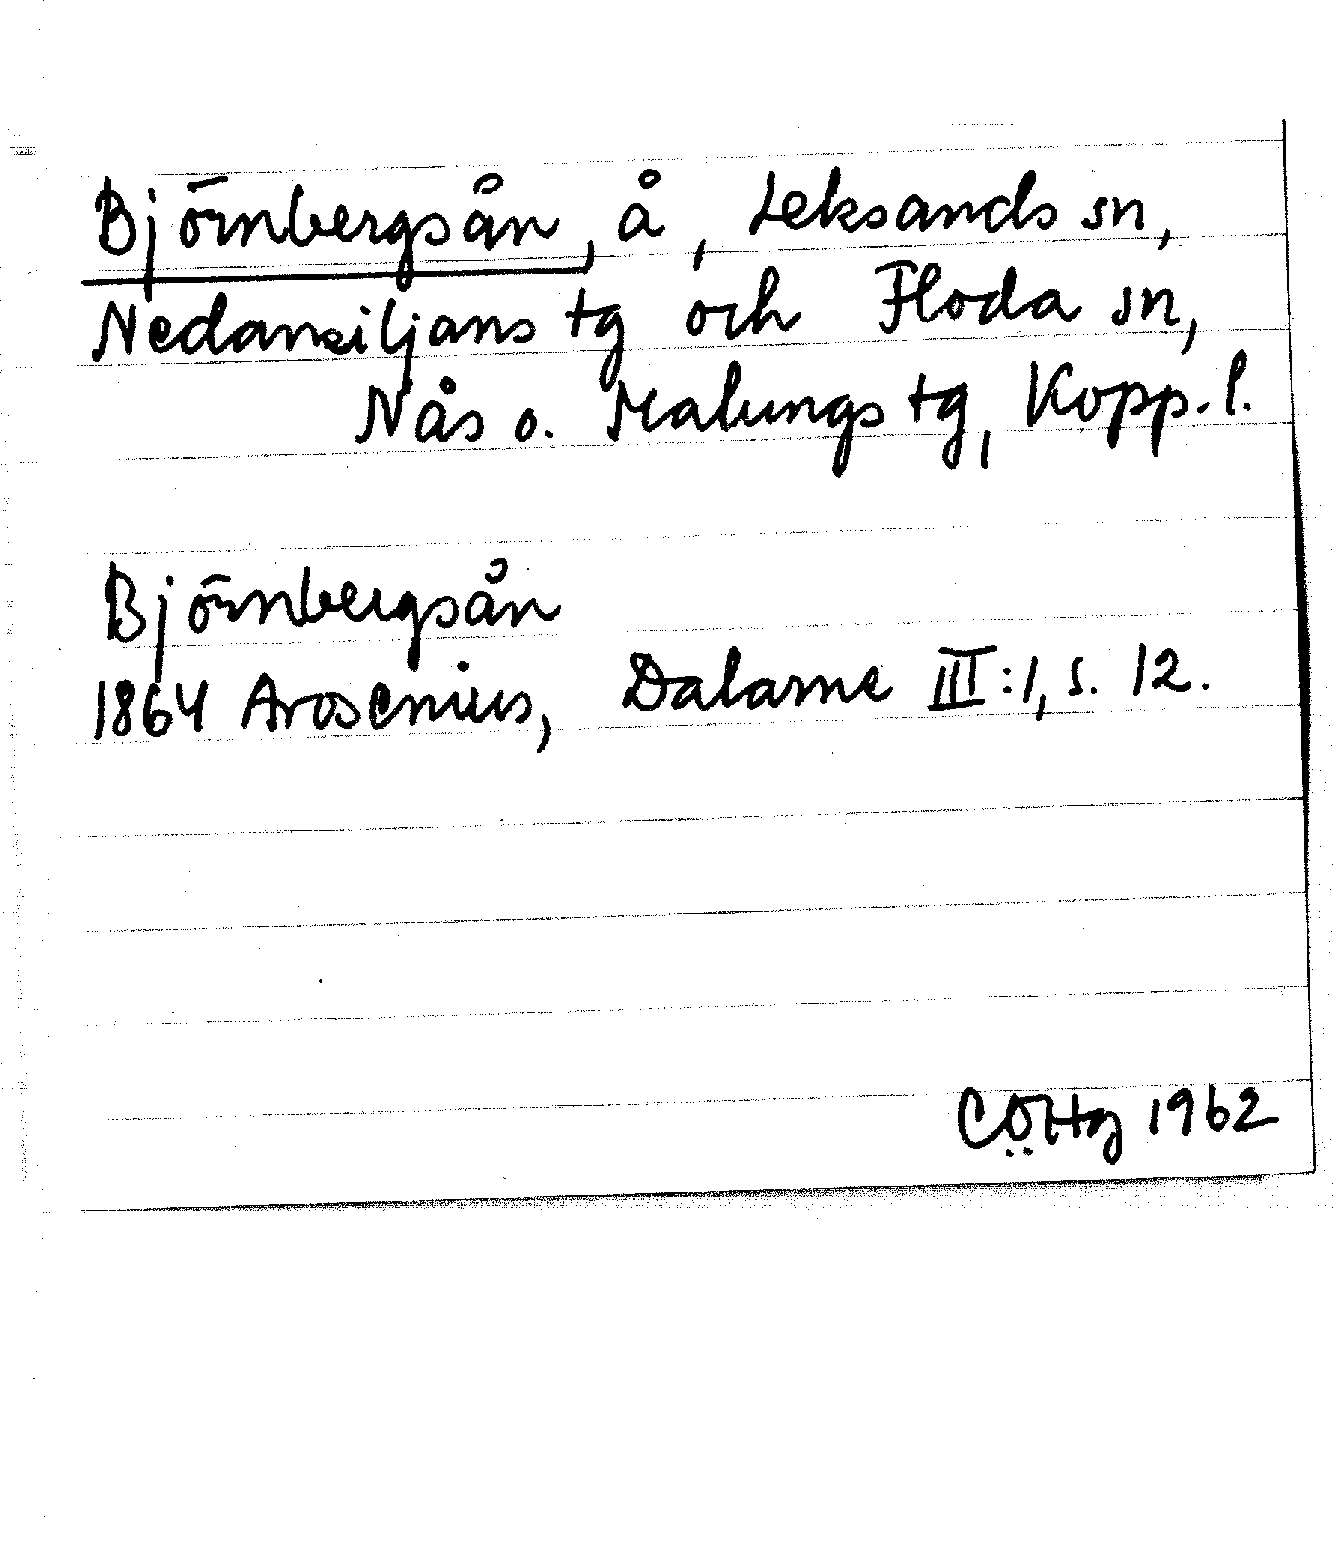 Björnbergsån, å, Leksands sn,
Nedansiljans tg och Floda sn,
Nås o. Malungs tg, Kopp. l.
Björnbergsån
1864 Arosenius, Dalarne III:1, s. 12.
CÖHg 1962